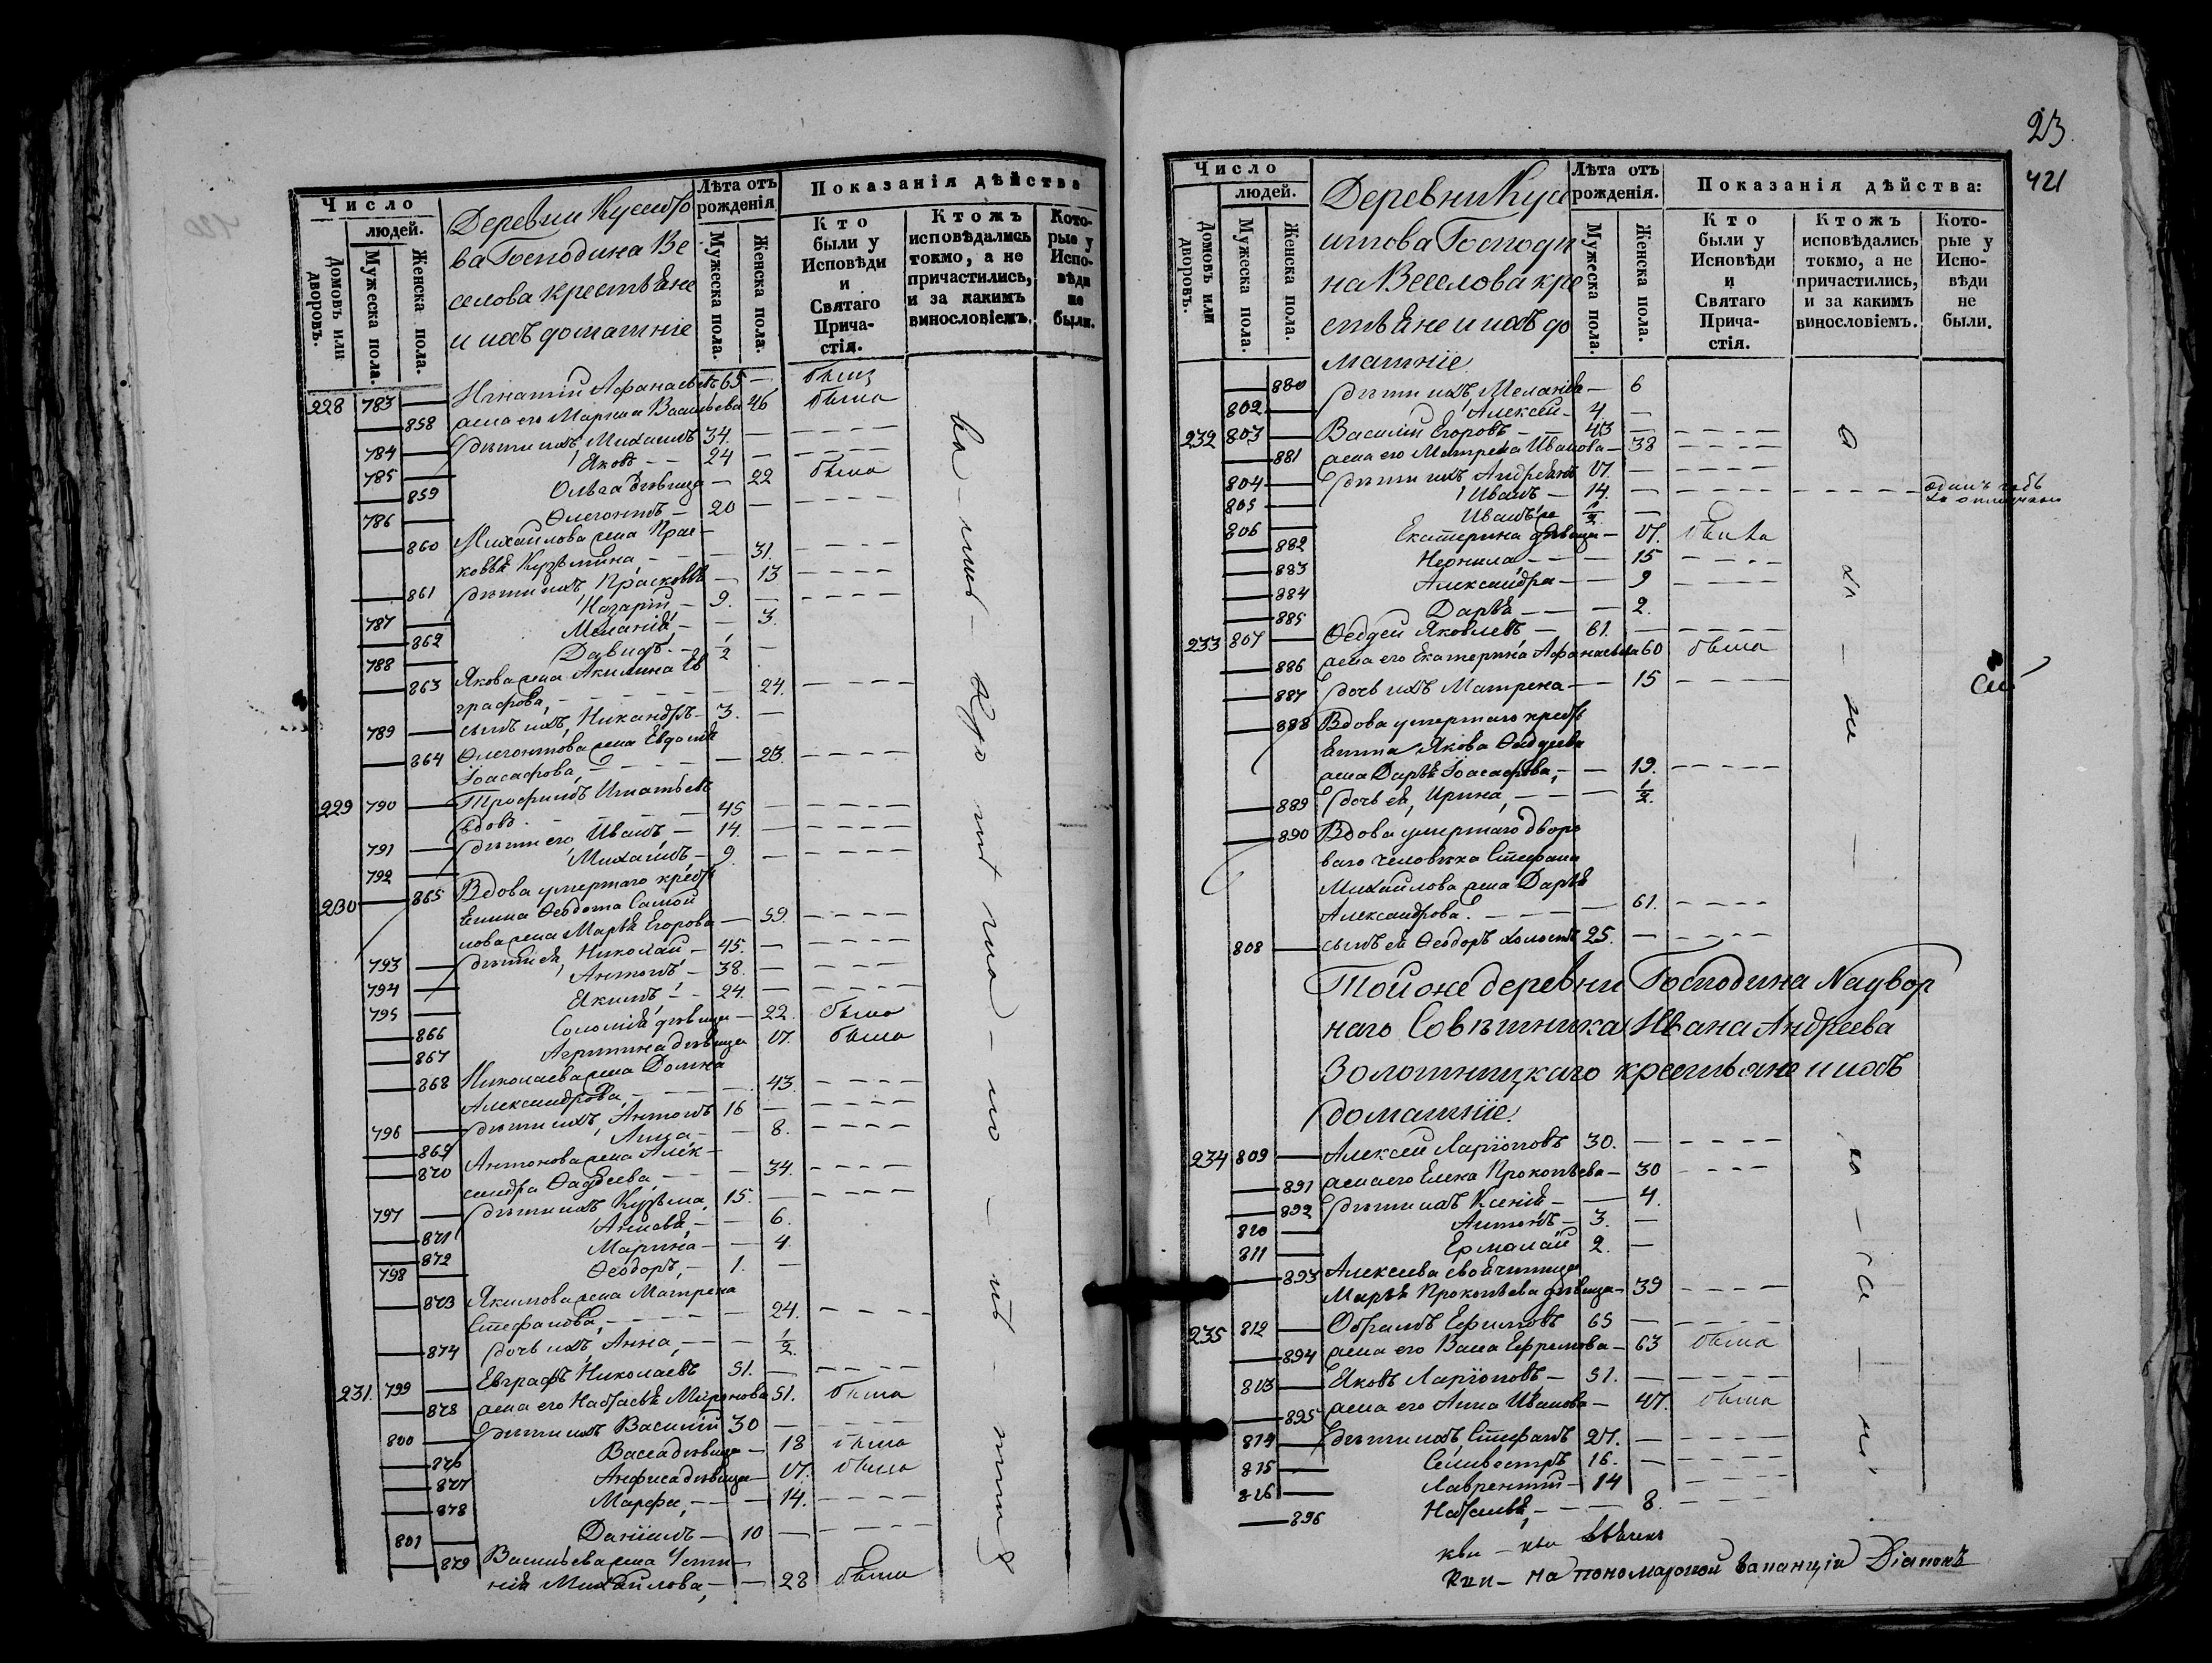 Число
людей.
Домовъ или дворовъ.
Мужеска пола.
Женска пола.
Деревни
ва Господина Ве
селова крестьяне
и ихъ домашніе
Лѣта отъ рожденія
Мужеска пола.
Женска пола.
Показанія дѣйства
Кто были у Исповѣди и Святаго Причастія.
Ктожъ исповѣдались токмо, а не причастились, и за какимъ винословіемъ.
Которые у Исповѣди не были.
228 783 — Игнатій Афанасьевъ 65 —
— 858 жена его Марина Васильева 46 была
784 — дѣти ихъ, Михаилъ 34. —
785 — Яковъ — 24 —
— 859 Ольга дѣвица — 22 была
786 — Флегонтъ — 20 —
— 860 Михайлова жена Прас-
ковья Кузьмина, — 31.
— 861 дѣти ихъ Прасковья — 13
787 — Назарій — 9. —
— 862 Меланія — 3.
788 — Давидъ — 1/2 —
— 863 Якова жена Акилина Ев
графова, — 24.
789 — сынъ ихъ, Никандръ — 3. —
— 864 Флегонтова жена Евдокія
Іоасафова, — 23.
229 790 — Трофимъ Игнатьевъ
вдовъ — 45 —
791 — дѣти его, Иванъ, — 14. —
792 — Михаилъ — 9. —
230 — 865 Вдова умершаго крестья
нина Ѳеодота Самой
лова жена Марья Егорова — 59.
793 — дѣти ея, Николай — 45. —
794 — Антонъ — 38. —
795 — Якимъ — 24. —
— 866 Соломія дѣвица — 22. была
— 867 Агрипина дѣвица 17. была
— 868 Николаева жена Домна
Александрова, — 43.
796 — дѣти ихъ, Антонъ 16 —
— 869 Анна — 8.
— 870 Антонова жена Алек-
сандра Ѳаддеева, — 34.
797 — дѣти ихъ Кузьма, 15. —
— 871 — 6.
— 872 Марина — 4.
798 — Ѳеодоръ, — 1. —
— 873 Якимова жена Матрена
Стефанова, — 24.
— 874 дочь ихъ, Анна, — 1/2.
231. 799 — Евграфъ Николаевъ 51. —
— 875 жена его Настасья Миронова 51. была
800 — дѣти ихъ Василій 30 —
— 876 Васса дѣвица — 18 была
— 877 Анфиса дѣвица — 17. была
— 878 Марфа, — 14.
801 — Даніилъ — 10 —
— 879 Васильева жена Усти-
нія Михайлова, — 28 была
23.
421
Число
людей.
Домовъ или дворовъ.
Мужеска пола.
Женска пола.
Деревни
Господи
на Веселова кре
стьяне и ихъ до
машніе
Лѣта отъ рожденія.
Мужеска пола.
Женска пола.
Показанія дѣйства:
Кто были у Исповѣди и Святаго Причастія.
Ктожъ исповѣдались токмо, а не причастились, и за какимъ винословіемъ.
Которые у Исповѣди не были.
— 880 дѣти ихъ, Меланія — 6
802 — Алексѣй — 4. —
232 803 — Василій Егоровъ — 43 —
— 881 жена его Матрена Иванова — 38
804 — дѣти ихъ, Андреянъ 17. —
805 — Иванъ — 14. —
806 — Иванъ 1/2. —
— 882 Екатерина дѣвица — 17. была
— 883 Неонила — 15
— 884 Александра — 9
— 885 Дарья — 2.
233 807 — Ѳаддей Яковлевъ — 61. —
— 886 жена его Екатерина Афанасьева 60 была
— 887 дочь ихъ Матрена — 15
— 888 Вдова умершаго крестья
нина Якова Ѳаддеева
жена Дарья Іоасафова, — 19.
— 889 дочь ея, Ирина, — 1/2.
— 890 Вдова умершаго дворо
ваго человѣка Стефана
Михайлова жена Дарья
Александрова. — 61.
808 — сынъ ея Ѳеодоръ холостъ 25. —
Той же деревни Господина Надвор
наго Совѣтника Ивана Андреева
Золотницкаго крестьяне и ихъ
домашніе.
234 809 — Алексѣй Ларіоновъ 30. —
— 891 жена его Елена Прокопьева — 30
— 892 дѣти ихъ Ксенія — 4.
810 — Антонъ — 3. —
811 — Ермолай 2. —
— 893 Алексѣева своячиница
Марья Прокопьева дѣвица — 39
235 812 — Ефимовъ 65 —
— 894 жена его Васса Ефремова — 63 была
813 — Яковъ Ларіоновъ — 51. —
— 895 жена его Анна Иванова — 47. была
814 — дѣти ихъ, Стефанъ 27. —
815 — Селивестръ 16. —
816 — Лаврентій — 14
— 896 Настасья, — 8.
на пономарской ваканціи Діаконъ